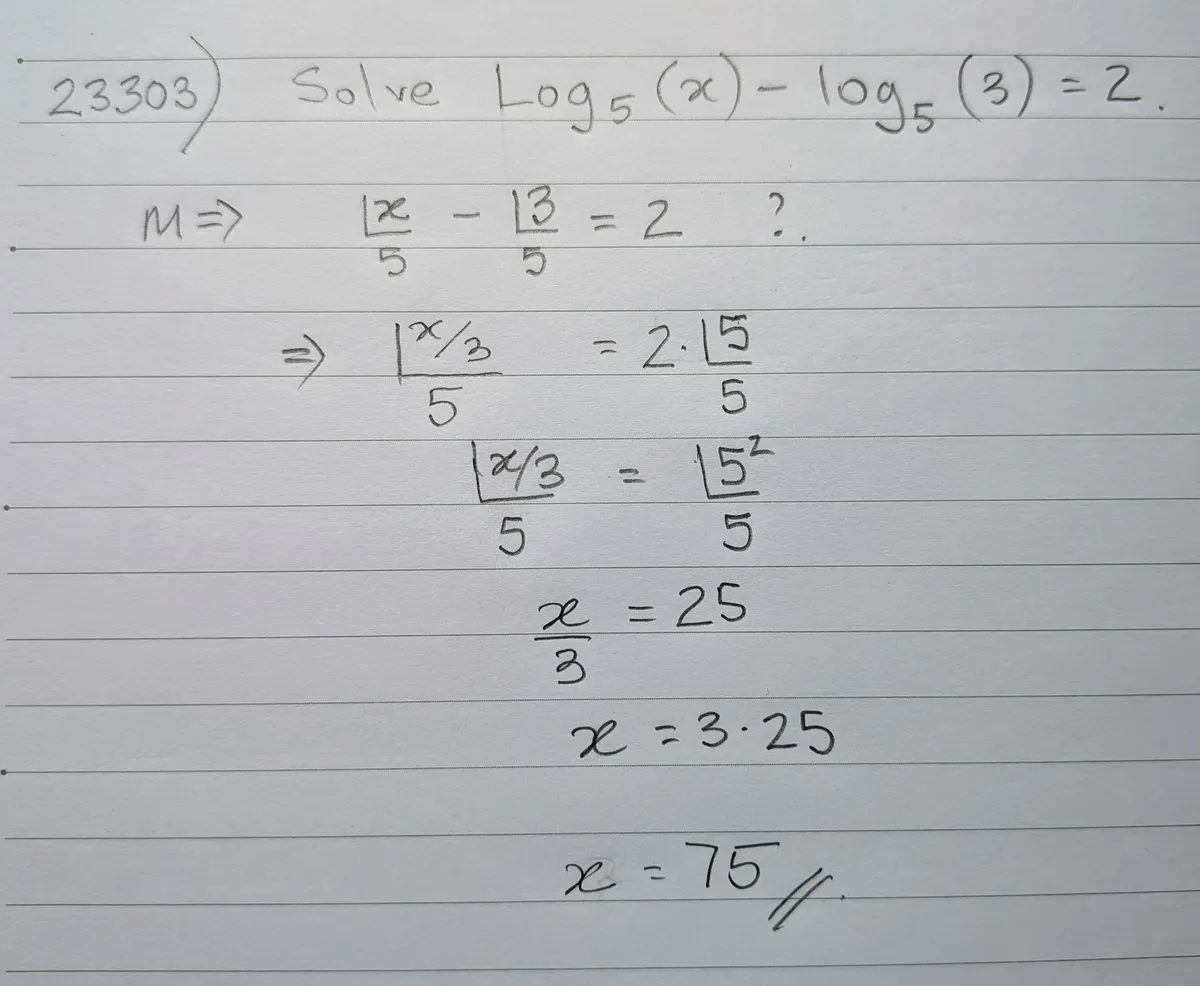 23303) Solve Log₅(x) - log₅(3) = 2.
M⇒ |x/5 - |3/5 = 2 ?.
⇒ |x/3 / 5 = 2·|5/5
|x/3 / 5 = |5²/5
x/3 = 25
x = 3·25
x = 75 //.